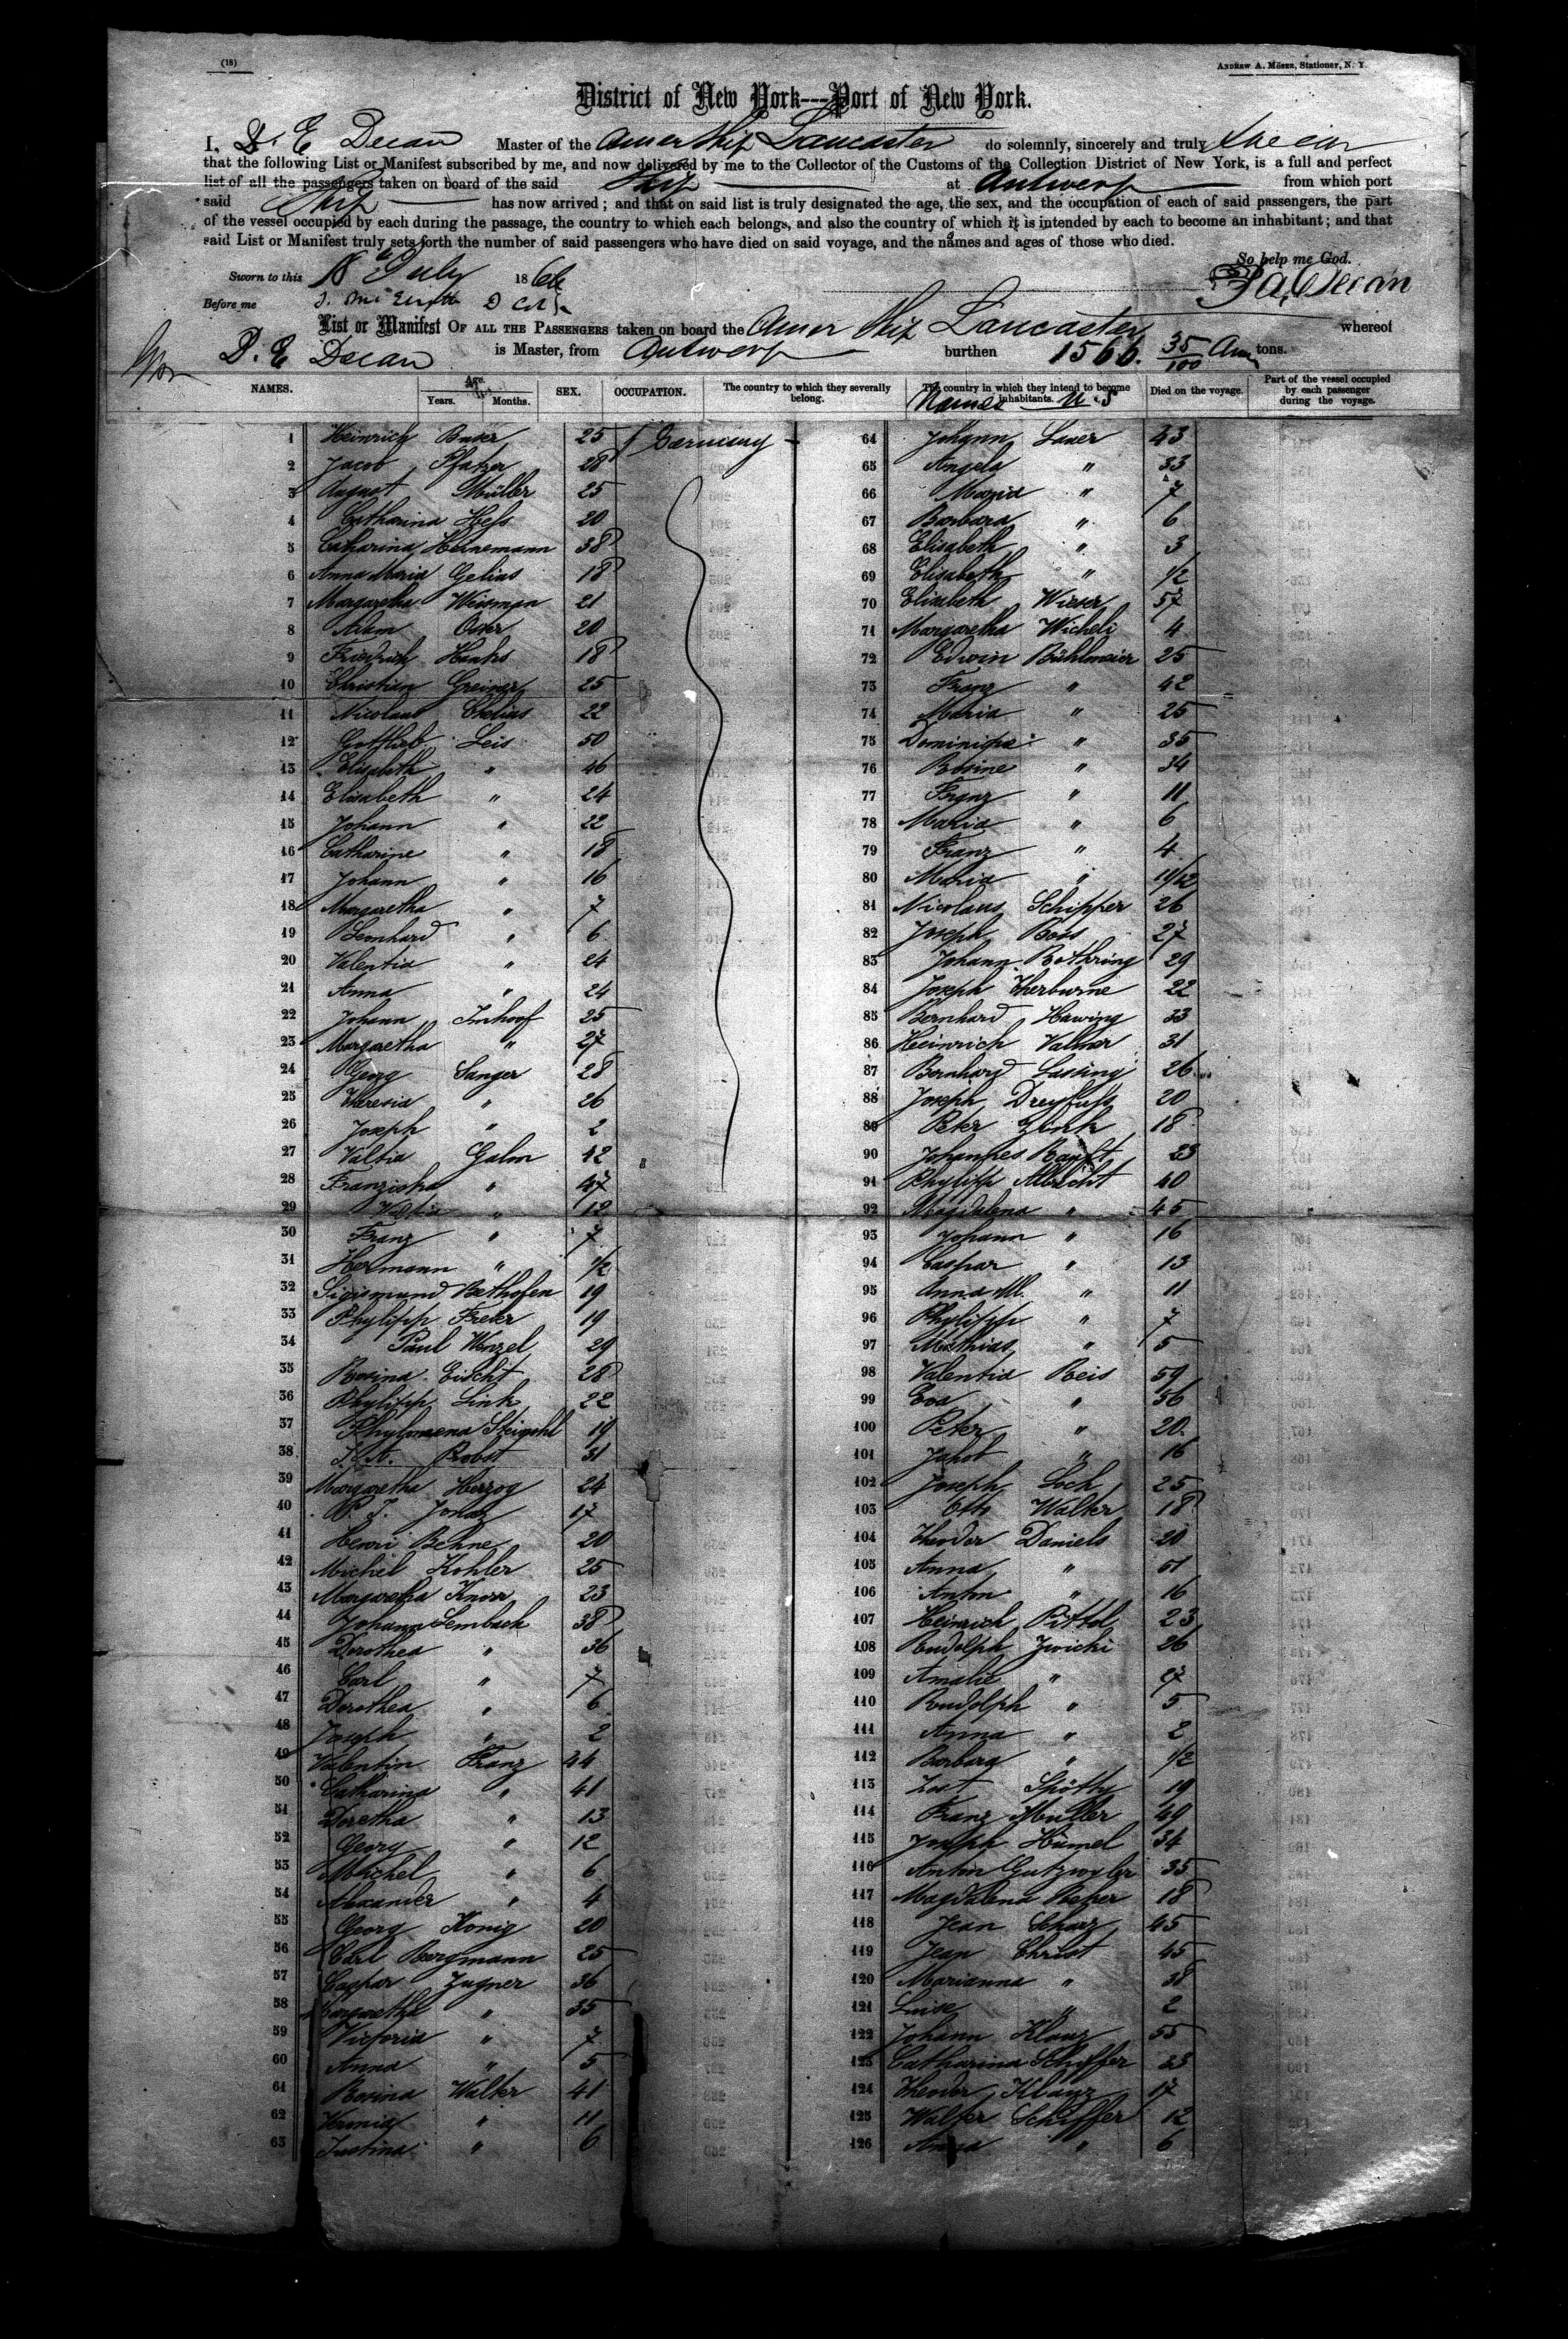 (18)
ANDREW A. MÖSER, Stationer, N. Y.
District of New York---Port of New York.
I, D. E Decan Master of the Amer Ship Lancaster do solemnly, sincerely and truly swear
that the following List or Manifest subscribed by me, and now delivered by me to the Collector of the Customs of the Collection District of New York, is a full and perfect
list of all the passengers taken on board of the said Ship at Antwerp from which port
said Ship has now arrived; and that on said list is truly designated the age, the sex, and the occupation of each of said passengers, the part
of the vessel occupied by each during the passage, the country to which each belongs, and also the country of which it is intended by each to become an inhabitant; and that
said List or Manifest truly sets forth the number of said passengers who have died on said voyage, and the names and ages of those who died.
So help me God.
Sworn to this 18th July 1866
Before me
List or Manifest OF ALL THE PASSENGERS taken on board the Amer Ship Lancaster whereof
D. E Decan is Master, from Antwerp burthen 1566. 35/100 tons.
NAMES. Age. Years. Months. SEX. OCCUPATION. The country to which they severally belong. The country in which they intend to become inhabitants. Died on the voyage. Part of the vessel occupied by each passenger during the voyage.
Names U.S
1 Heinrich 25 Germany
2 Jacob Pfatzer 28
3 August Müller 25
4 Catharina Hess 20
5 Catharina Heinemann 38
6 Anna Maria Gelias 18
7 Margaretha Wissman 21
8 Adam 20
9 Friedrich Hanks 18
10 Christian Greiner 25
11 Nicolaus Chelius 22
12 Gottlieb Leis 50
13 Elisabeth " 46
14 Elisabeth " 24
15 Johann " 22
16 Catharine " 18
17 Johann " 16
18 Margaretha " 7
19 Leonhard " 6
20 Valentin " 24
21 Anna " 24
22 Johann Imhoof 25
23 Margaretha " 27
24 Georg Sanger 28
25 Theresia " 26
26 Joseph " 2
27 Galm 42
28 Franziska " 47
29 " 12
30 Franz " 7
31 Hermann " 1/2
32 Sigismund Bethofen 19
33 Phylipp Freter 19
34 Paul Wenzel 29
35 Rosina Eischt 28
36 Phylipp Link 22
37 Phylomena 19
38 Probst 31
39 Margaretha Herzog 24
40 17
41 Henri Behne 20
42 Michel Kohler 25
43 Margaretha Knorr 23
44 Johann Lembach 38
45 Dorothea " 36
46 Carl " 7
47 Dorothea " 6
48 Joseph " 2
49 Valentin Franz 44
50 Catharina " 41
51 Doretha " 13
52 Georg " 12
53 Michel " 6
54 Alexander " 4
55 Georg Konig 20
56 Carl Bergmann 25
57 Caspar Zugner 36
58 Margaretha " 35
59 Victoria " 7
60 Anna " 5
61 Rosina Walter 41
62 " 11
63 Justina " 6
64 Johann Lauer 43
65 Angela " 33
66 Maria " 7
67 Barbara " 6
68 Elisabeth " 3
69 Elisabeth " 1/2
70 Elisabeth Wieser 57
71 Margaretha Wicheli 4
72 Edwin Bühlmeier 25
73 Franz " 42
74 Maria " 25
75 Dominique " 35
76 Rosine " 34
77 Franz " 11
78 Maria " 6
79 Franz " 4
80 Maria " 11/12
81 Nicolaus Schipper 26
82 Joseph Boss 27
83 Johann Rothring 29
84 Joseph Therburne 22
85 Bernhard Hawing 33
86 Heinrich Valmer 31
87 Bernhard Lassing 26
88 Joseph Dreyfuss 20
89 Peter Zenk 18
90 Johannes 23
91 Phylipp Albrecht 40
92 Magdalena " 45
93 Johann " 16
94 Caspar " 13
95 Anna M. " 11
96 Phylipp " 7
97 Mathias " 5
98 Valentin Reis 59
99 Eva " 56
100 Peter " 20
101 Jakob " 16
102 Joseph Loch 25
103 Otto Walter 18
104 Theodor Daniels 20
105 Anna " 51
106 Anton " 16
107 Heinrich Pittel 23
108 Rudolph Zwicki 26
109 Amalie " 27
110 Rudolph " 5
111 Anna " 2
112 Barbara " 1/2
113 Jost 19
114 Franz Muller 49
115 Joseph Humel 34
116 Anton Gutzwyler 35
117 Magdalena Reper 18
118 Jean Scharz 45
119 Jean Christ 45
120 Marianna " 38
121 Luise " 2
122 Johann Klanz 55
123 Catharina Schiffer 23
124 Theodor Klanz 17
125 Walter Schiffer 12
126 Anna " 6